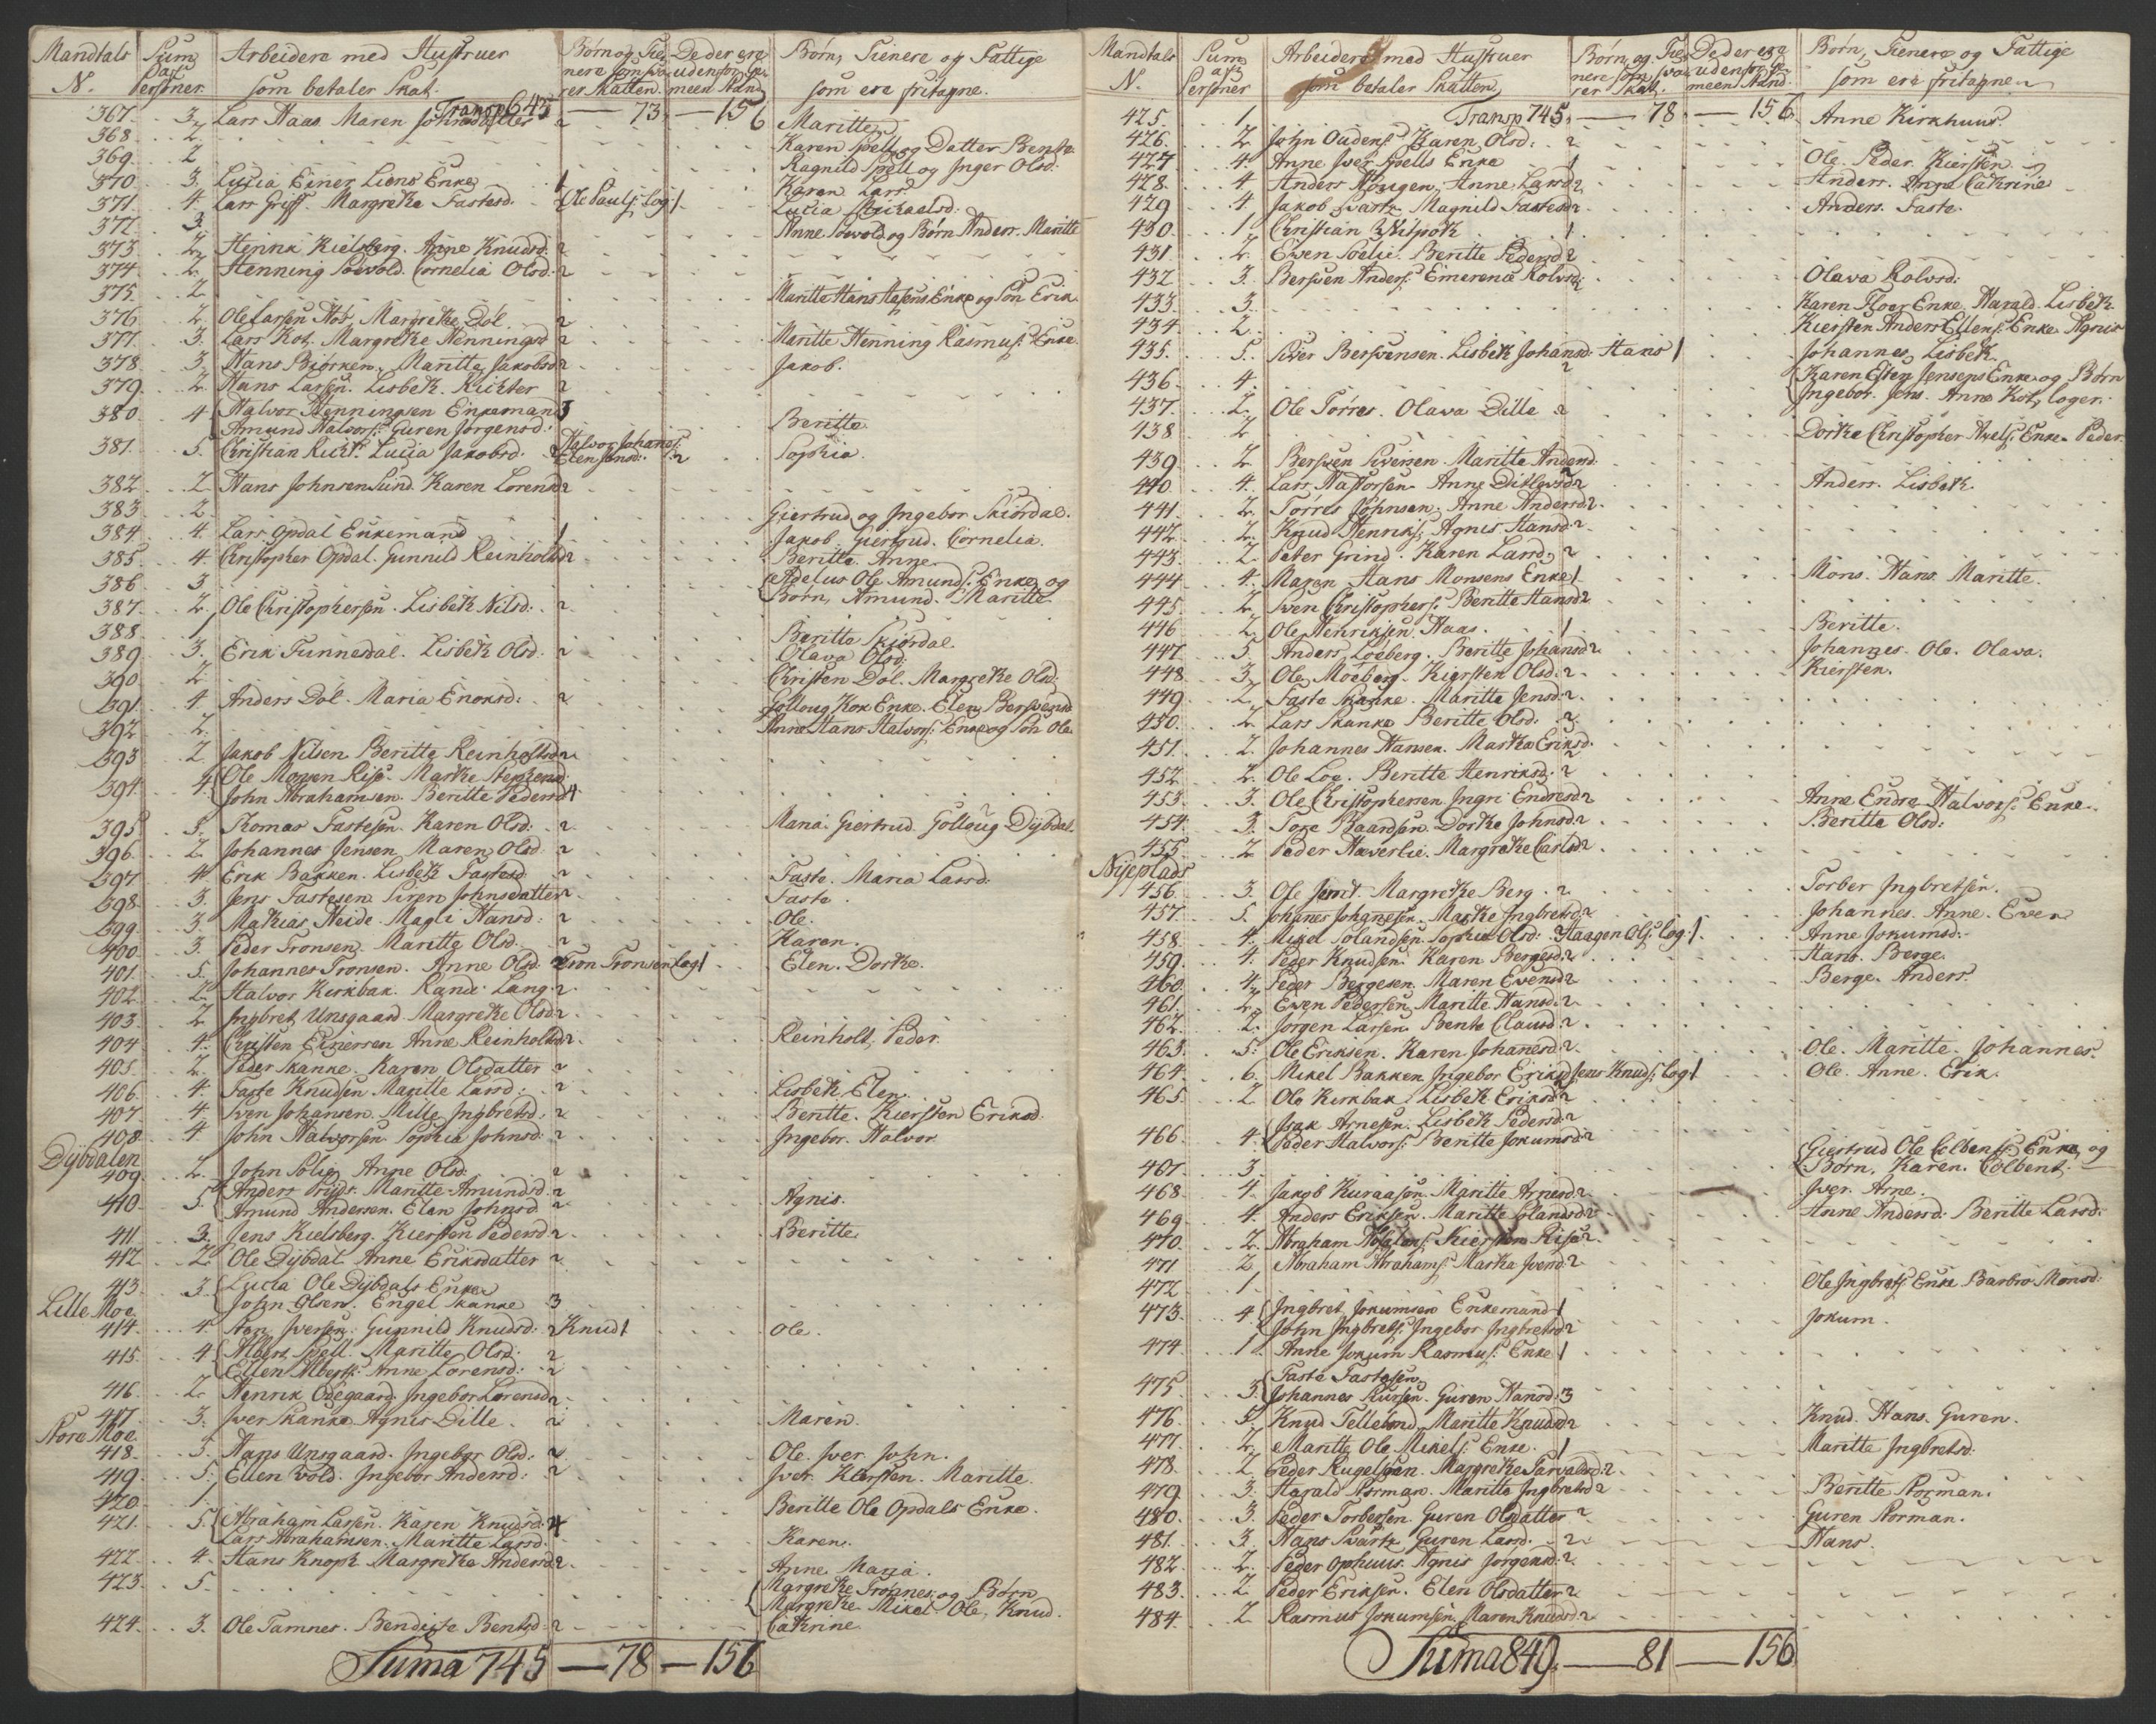 Mandtals N. Sum af Persohner. Arbeidere med Hustruer som betaler Skat. Børn og Tienere som svarer Skatten. De der ere udenfor Gemeen Stand Børn, Tienere og Fattige som ere fritagne.
Transp 645 — 73 — 156
367. 3. Lars Haas. Maren Johnsdatter 2 Maritte
368. 2 Karen Spell og Datter Bente
369. 2 Ragnild Spell og Inger Olsd:
370. 3. Lucia Einer Liens Enke 1 Karen Larsd.
371. 4. Lars Griff. Margrethe Fastesd. 2 Ole Pauls: log: 1 Lucia Michaelsd:
372. 3. Anne Soevold og Børn Anders. Maritte
373. 2. Henrik Kielsberg. Anne Knudsd. 2
374. 2. Henning Soevold. Cornelia Olsd. 2
375. 2. Maritte Hans Aasens Enke og Søn Erik
376. 2. Ole Larsen Kot. Margrethe Dol. 2
377. 3. Lars Kot. Margrethe Henningsd 2 Maritte Henning Rasmus: Enke
378. 3. Hans Biørken. Maritte Jakobsd 2 Jakob.
379. 2. Hans Larsen. Lisbeth Richter 2
380. 4 Halvor Henningsen Enkemand 3
Amund Halvors: Guren Jørgensd: Beritte
381. 5. Christian Richt: Lucia Jakobsd. 2 Halvor Johans: Elen Jensd: 2 Sophia
382. 2 Hans Johnsen Lund. Karen Lorensd 2
383. 2. Giertrud og Ingebor Skiørdal.
384. 4. Lars Opdal Enkemand 1 Jakob. Giertrud. Cornelia.
385. 4. Christopher Opdal. Gunnild Reinholtsd 2 Beritte. Anne.
386. 3 Adelus Ole Amunds: Enke og
Børn, Amund. Maritte
387. 2. Ole Christophersen. Lisbeth Nilsd: 2
388 1 Beritte Skiørdal.
389. 3. Erik Tunnesdal. Lisbeth Olsd. 2 Olava Olsd:
390. 2. Christen Dol. Margrethe Olsd.
391. 4. Anders Dol. Maria Enoksd: 2 Gollaug Kok Enke. Elen Berswensd
392 2. Anne Hans Halvors: Enke og Søn Ole
393 2 Jakob Nilsen Beritte Reinholtsd 2
394. 4 Ole Monsen Risø. Marthe Stephensd:
John Abrahamsen. Beritte Pedersd 4
395. 5. Thomas Fastesen. Karen Olsd: 2 Maria. Giertrud. Gollaug Dybdal.
396. 2. Johannes Jensen. Maren Olsd. 2
397. 4 Erik Bakken. Lisbeth Fastesd 2 Faste. Maria Larsd.
398 3. Jens Fastesen. Siren Johnsdatter 2 Faste.
399 3. Mathias Heide. Magli Hansd: 2 Ole.
400. 3 Peder Tronsen. Maritte Olsd. 2 Karen.
401. 5. Johannes Tronsen. Anne Olsd: 2 Tron Tronsen log 1 Elen. Dorthe.
402. 2. Halvor Kirkbak. Randi Lang. 2
403. 2 Ingbret Unsgaard. Margrethe Olsd 2
404. 4. Christen Einersen Anne Reinholtsd 2. Reinholt. Peder.
405. 2. Peder Skanke. Karen Olsdatter 2
406. 4. Faste Knudsen Maritte Larsd: 2 Lisbeth. Elen.
407. 4. Swen Johansen. Mille Ingbretsd. 2 Beritte. Kiersten Eriksd.
408. 4. John Halvorsen. Sophia Johnsd: 2 Ingebor. Halvor
Dybdalen
409. 2. John Solie. Anne Olsd: 2
410. 5. Anders Friids. Maritte Amundsd. 2
Amund Andersen. Elen Johnsd. 2 Agnis.
411 3. Jens Kielsberg. Kiersten Pedersd 2 Beritte
412. 2. Ole Dybdal Anne Eriksdatter 2
413. 3. Lucia Ole Dybdals Enke
John Olsen. Engel Skanke 3
Lille Moe
414. 4. Sten Iversen. Gunnild Knudsd: 2 Knud 1 Ole.
415. 4 Albert Spell. Maritte Olsd: 2
Ellen Alberts: Anne Lorensd: 2
416. 2. Henrik Ødegaard. Ingebor Lorensd 2
417. 3. Iver Skanke Agnis Dille. 2 Maren.
Store Moe
418. 5. Hans Unsgaard. Ingebor Olsd: 2 Ole. Iver. John.
419. 5. Ellen Wold. Ingebor Andersd: 2 Iver. Kiersten. Maritte
420. 1 Beritte Ole Opdals Enke.
421. 5. Abraham Larsen. Karen Knudsd: 4
Lars Abrahamsen. Maritte Larsd: Karen.
422. 4. Hans Knoph. Margrethe Andersd 2 Anne Maria.
423. 5. Margrethe Trønnes og Børn
Margrethe Mikel. Ole. Knud.
424. 3. Ole Tamnes. Bendiste Bentsd. 2 Cathrine.
Suma 745 — 78 — 156
Mandtals N. Sum af Persohner Arbeidere med Hustruer som betaler Skatten Børn og Tienere som svarer Skatt. De der ere udenfor Gemeen Stand. Børn, Tienere og Fattige som ere fritagne
Transp 745. — 78 — 156
425. 1. Anne Kirkhuus.
426. 2 John Oudens: Karen Olsd: 2
427. 4 Anne Iver Spells Enke 1 Ole. Peder. Kiersten
428. 4 Anders Hougen. Anne Larsd 2 Anders. Anne Cathrine
429 4. Jakob Svartz. Magnild Fastesd 2 Anders. Faste.
430. 1 Christian 1
431. 2. Ewen Soelie. Beritte Pedersd 2
432 3. Berswen Anders: Emerentia Rolvsd: 2 Olava Rolvsd.
433. 3. Karen Floer Enke. Harald. Lisbeth
434. 2. Kiersten Anders Ellens: Enke. Agnis
435. 5. Siver Berswensen. Lisbeth Johansd. 2 Hans 1 Johannes. Lisbeth.
436. 4. Karen Esten Jensens Enke og Børn
Ingebor. Jens. Anne Kot, loger.
437. 2. Ole Torres. Olava Dille 2
438 2. Dorthe Christopher Axels: Enke. Peder.
439. 2 Berswen Siversen. Maritte Andersd.
440. 4. Lars Hastorsen. Anne Ditlevsd 2 Anders. Lisbeth.
441. 2. Torres Johnsen. Anne Andersd 2.
442. 2. Knud Henriks: Agnis Hansd: 2
443. 2 Peter Grind. Karen Larsd: 2
444. 4. Maren Hans Monsens Enke 1 Mons. Hans. Maritte.
445. 2. Swen Christophers: Beritte Hansd 2
446 2. Ole Henriksen Haas. 1 Beritte.
447. 5. Anders Løeberg. Beritte Johansd 2 Johannes. Ole. Olava.
448 3. Ole Moeberg. Kiersten Olsd: 2 Kiersten.
449. 2. Faste Skanke. Maritte Jensd: 2
450. 2. Lars Skanke Beritte Olsd: 2
451. 2. Johannes Hansen. Martha Eriksd. 2
452 2. Ole Loe. Beritte Henriksd: 2
453. 3. Ole Christophersen Ingri Endresd 2 Anne Endre Halvors: Enke.
454. 3. Tore Baardsen. Dorthe Johnsd: 2 Beritte Olsd:
455. 2 Peder Haverlie. Margrethe Carlsd 2
Nyeplads
456. 3. Ole Smit. Margrethe Berg. 2 Torber Ingbretsen.
457. 5. Johanes Johanesen. Marthe Ingbretsd: 2 Johannes. Anne. Ewen
458. 4. Mikel Solandsen. Sophie Olsd: 2 Haagen Ols: log: 1 Anne Jokumsd:
459. 4. Peder Knudsen. Karen Bergesd: 2 Hans. Berge.
460. 4. Peder Bergesen. Maren Ewensd 2 Berge. Anders.
461. 2. Ewen Pedersen Maritte Hansd: 2
462. 2. Jørgen Larsen. Bente Clausd: 2
463. 5. Ole Eriksen. Karen Johanesd: 2. Ole. Maritte. Johannes.
464. 6. Mikel Bakken. Ingebor Eriksd 2 Jens Knuds: log 1 Ole. Anne. Erik.
465. 2 Ole Kirkbak. Lisbeth Eriksd 2
466. 4. Isak Arnesen. Lisbeth Pedersd: 2
Peder Halvors: Beritte Jokumsd: 2
467. 3. Giertrud Ole Colbens: Enke og
Børn, Karen. Colbent.
468 4. Jakob Kuraasen. Maritte Arnesd: 2 Iver. Arne.
469. 4. Anders Eriksen. Maritte Olandsd 2 Anne Andersd: Beritte Larsd:
470. 2. Abraham Kiersten Risø 2.
471 2 Abraham Abrahams: Martha Iversd: 2
472 1 Ole Ingbrets: Enke Barbro Monsd:
473. 4 Ingbret Jokumsen Enkemand 1
John Ingbrets: Ingebor Ingbretsd 2 Jokum.
474. 1 Anne Jokum Rasmus: Enke 1
475. 3. Faste Fastesen
Johannes Siursen. Guren Hansd. 3
476. 5. Knud Tellebond. Maritte Knudsd 2 Knud. Hans. Guren.
477. 2. Maritte Ole Mikels: Enke. 1 Maritte Ingbretsd.
478. 2 Peder Kugelstuen. Margrethe Tarvalsd. 2
479. 3. Harald Norman. Maritte Ingbretsd 2 Beritte Norman.
480. 3. Peder Torbersen. Guren Olsdatter 2 Guren Norman.
481. 3 Hans Svartz. Guren Larsd. 2 Hans.
482. 2. Peder Ophuus. Agnis Jørgensd: 2
483. 2 Peder Eriksen. Elen Olsdatter 2
484. 2 Rasmus Jokumsen. Maren Knudsd 2
Suma 849. — 81 — 156